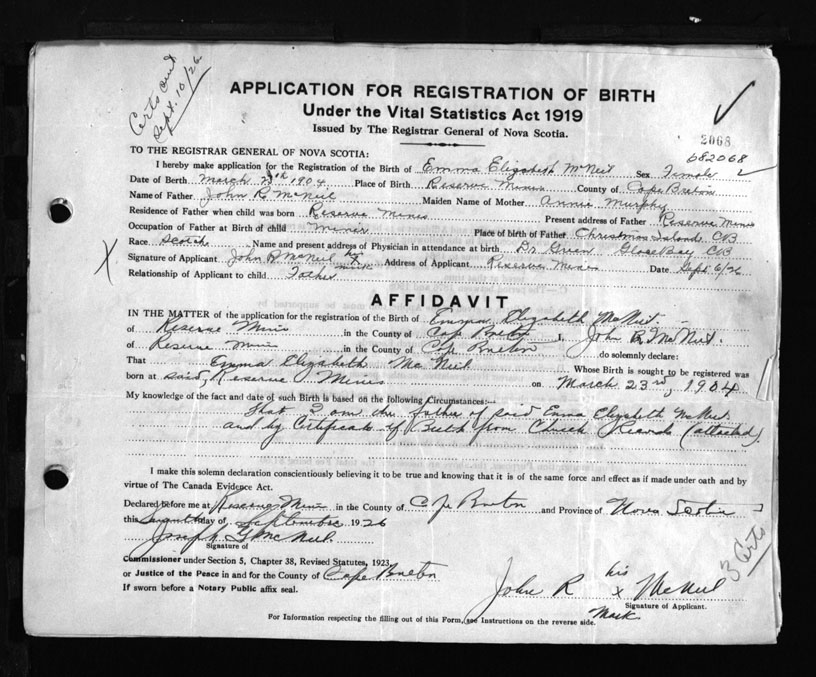 Certs and
Sept. 10/26
APPLICATION FOR REGISTRATION OF BIRTH
Under the Vital Statistics Act 1919
Issued by The Registrar General of Nova Scotia.
2068
682068
TO THE REGISTRAR GENERAL OF NOVA SCOTIA:
I hereby make application for the Registration of the Birth of Emma Elizabeth McNeil Sex Female
Date of Berth March 1904 Place of Birth Reserve Mines County of Cape Breton
Name of Father John R McNeil Maiden Name of Mother Annie Murphy
Residence of Father when child was born Reserve Mines Present address of Father Reserve Mines
Occupation of Father at Birth of child Miner Place of birth of Father Christmas Island CB
Race Scotch Name and present address of Physician in attendance at birth Dr Green Glace Bay CB
X Signature of Applicant John R McNeil his X mark Address of Applicant Reserve Mines Date Sept 6/26
Relationship of Applicant to child Father
AFFIDAVIT
IN THE MATTER of the application for the registration of the Birth of Emma Elizabeth McNeil
of Reserve Mines in the County of Cape Breton I, John R McNeil.
of Reserve Mines in the County of Cape Breton do solemnly declare:
That Emma Elizabeth McNeil Whose Birth is sought to be registered was
born at said, Reserve Mines on March 23rd, 1904
My knowledge of the fact and date of such Birth is based on the following Circumstances:—
That I am the father of said Emma Elizabeth McNeil
and by Certificate of Birth from Church Records (attached)
I make this solemn declaration conscientiously believing it to be true and knowing that it is of the same force and effect as if made under oath and by
virtue of The Canada Evidence Act.
Declared before me at Reserve Mines in the County of Cape Breton and Province of Nova Scotia
this day of September 1926
Joseph McNeil
Signature of
Commissioner under Section 5, Chapter 38, Revised Statutes, 1923,
or Justice of the Peace in and for the County of Cape Breton
If sworn before a Notary Public affix seal.
3 Certs
John R his x Mark McNeil
Signature of Applicant.
For Information respecting the filling out of this Form, see Instructions on the reverse side.